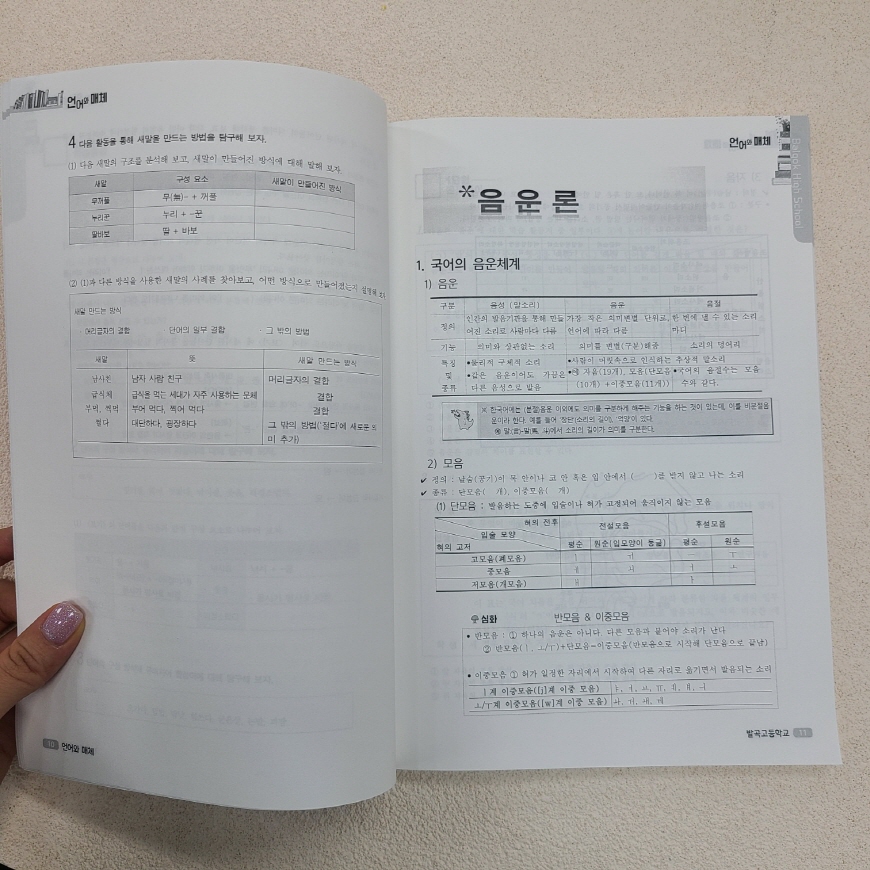 언어와 매체
4 다음 활동을 통해 새말을 만드는 방법을 탐구해 보자.
(1) 다음 새말의 구조를 분석해 보고, 새말이 만들어진 방식에 대해 말해 보자.
새말 구성 요소 새말이 만들어진 방식
무꺼풀 무(無)- + 꺼풀
누리꾼 누리 + -꾼
딸바보 딸 + 바보
(2) (1)과 다른 방식을 사용한 새말의 사례를 찾아보고, 어떤 방식으로 만들어졌는지 설명해 보자
새말 만드는 방식
· 머리글자의 결합 단어의 일부 결합 · 그 밖의 방법
새말 뜻 새말 만드는 방식
남사친 남자 사람 친구 머리글자의 결합
급식체 급식을 먹는 세대가 자주 사용하는 문체 결합
부먹, 찍먹 부어 먹다, 찍어 먹다 결합
쩔다 대단하다, 굉장하다 그 밖의 방법('절다'에 새로운 의
미 추가)
10 언어와 매체
언어와 매체
Balgok High School
*음운론
1. 국어의 음운체계
1) 음운
구분 음성 (말소리) 음운 음절
정의 인간의 발음기관을 통해 만들어진 소리로 사람마다 다름 가장 작은 의미변별 단위로, 언어에 따라 다름 한 번에 낼 수 있는 소리마디
기능 의미와 상관없는 소리 의미를 변별(구분)해줌 소리의 덩어리
특징 및 종류 •물리적 구체적 소리 •같은 음운이어도 가끔은 다른 음성으로 발음 •사람이 머릿속으로 인식하는 추상적 말소리
자음(19개), 모음(단모음(10개) +이중모음(11개)) •국어의 음절수는 모음 수와 같다.
※ 한국어에는 (분절)음운 이외에도 의미를 구분하게 해주는 기능을 하는 것이 있는데, 이를 비분절음
운이라 한다. 예를 들어 '장단(소리의 길이)', '억양'이 있다.
예 말(言)-말(馬, 斗)에서 소리의 길이가 의미를 구분한다.
2) 모음
✔ 정의 : 날숨(공기)이 목 안이나 코 안 혹은 입 안에서 ( )를 받지 않고 나는 소리
✔ 종류 : 단모음( 개), 이중모음( 개)
(1) 단모음 : 발음하는 도중에 입술이나 혀가 고정되어 움직이지 않는 모음
혀의 전후 전설모음 후설모음
입술 모양
혀의 고저 평순 원순(입모양이 동글) 평순 원순
고모음(폐모음) ㅣ ㅟ ㅡ ㅜ
중모음 ㅔ ㅚ ㅓ ㅗ
저모음(개모음) ㅐ ㅏ
심화 반모음 & 이중모음
• 반모음 : ① 하나의 음운은 아니다. 다른 모음과 붙어야 소리가 난다
② 반모음(ㅣ, ㅗ/ㅜ)+단모음=이중모음(반모음으로 시작해 단모음으로 끝남)
• 이중모음 ① 혀가 일정한 자리에서 시작하여 다른 자리로 옮기면서 발음되는 소리
ㅣ계 이중모음([j]계 이중 모음) ㅑ, ㅕ, ㅛ, ㅠ, ㅖ, ㅒ, ㅢ
ㅗ/ㅜ계 이중모음([w]계 이중 모음) ㅘ, ㅝ, ㅙ, ㅞ
발곡고등학교 11